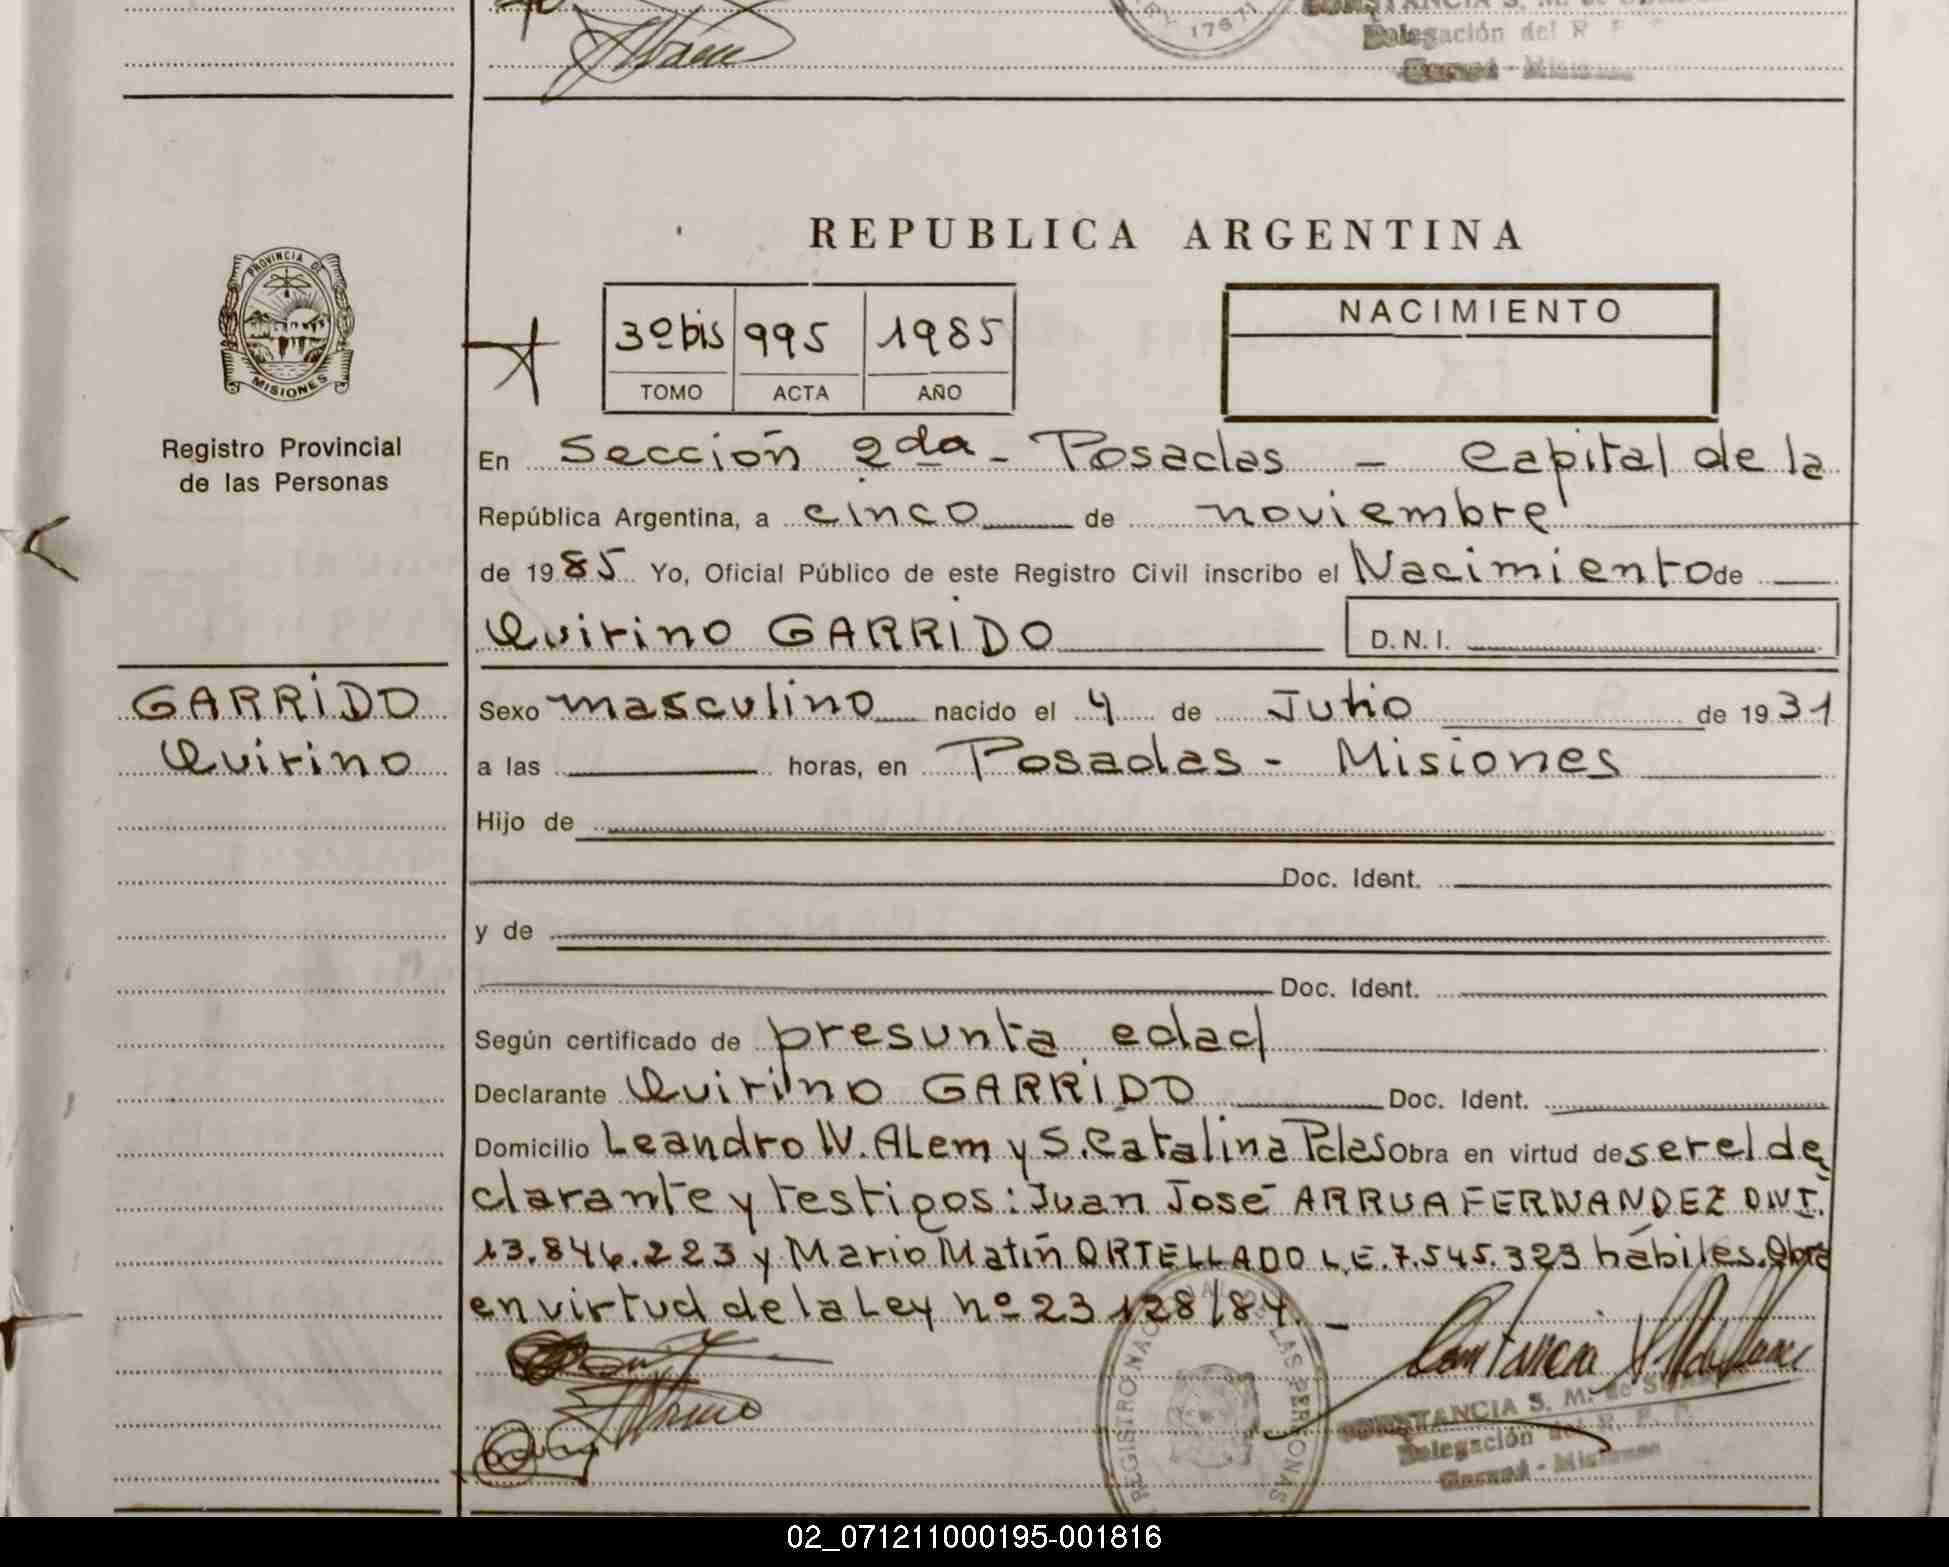 LEY 17671
CONSTANCIA S. M. de
Delegación del R. P.
Garupá - Misiones
REPUBLICA ARGENTINA
PROVINCIA DE
MISIONES
3º bis 995 1985
TOMO ACTA AÑO
NACIMIENTO
Registro Provincial
de las Personas
En Sección 2da - Posadas - Capital de la
República Argentina, a cinco de noviembre
de 1985 Yo, Oficial Público de este Registro Civil inscribo el Nacimiento de
Quirino GARRIDO D.N.I.
GARRIDO
Quirino
Sexo masculino nacido el 4 de Junio de 1931
a las horas, en Posadas - Misiones
Hijo de
Doc. Ident.
y de
Doc. Ident.
Según certificado de presunta edad
Declarante Quirino GARRIDO Doc. Ident.
Domicilio Leandro N. ALem y S. Catalina Pdas Obra en virtud de ser el de
clarante y testigos: Juan José ARRUA FERNANDEZ DNI.
13.846.223 y Mario Matiñ ORTELLADO L.E. 7.545.323 hábiles. Obra
en virtud de la Ley nº 23128/84. -
REGISTRO NACIONAL DE LAS PERSONAS
CONSTANCIA S. M. de
Delegación del R. P.
Garupá - Misiones
02_071211000195-001816